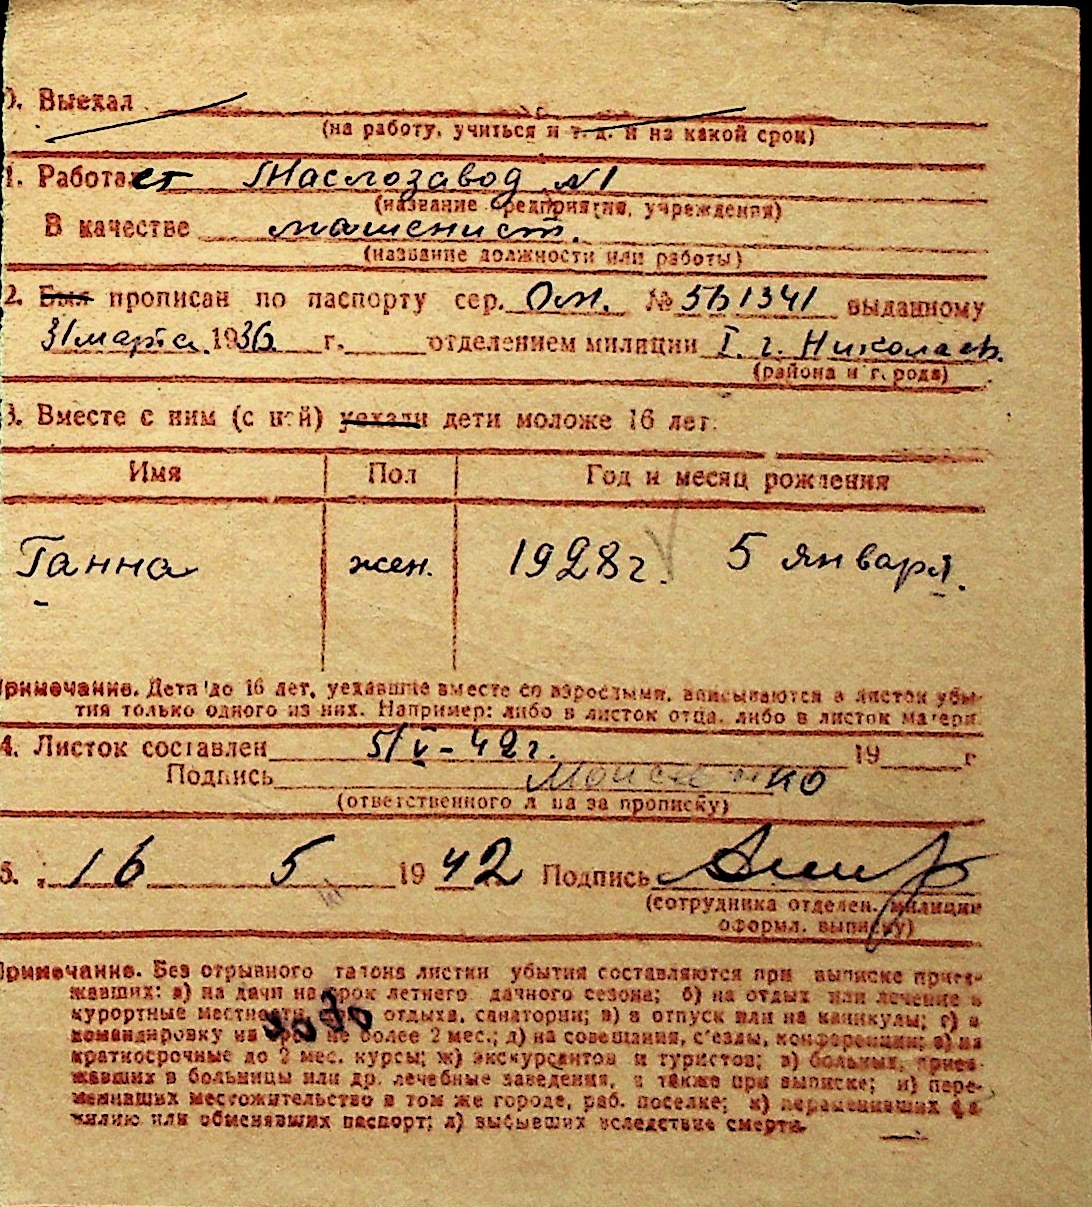 0. Выехал
(на работу, учиться и т. д. и на какой срок)
1. Работает Маслозавод №1
(название предприятия, учреждения)
В качестве машенист.
(название должности или работы)
2. Был прописан по паспорту сер. № 561341 выданному
31 марта 1936 г. отделением милиции I. г. Николаев.
(района и города)
3. Вместе с ним (с ней) уехали дети моложе 16 лет:
Имя Пол Год и месяц рождения
Ганна жен. 1928 г. 5 января.
Примечание. Дети до 16 лет, уехавшие вместе со взрослыми, вписываются в листок убы-
тия только одного из них. Например: либо в листок отца, либо в листок матери.
4. Листок составлен 5/V-42 г. 19 г.
Подпись
(ответственного лица за прописку)
5. 16 5 1942 Подпись
(сотрудника отделен. милиции
оформл. выписку)
Примечание. Без отрывного талона листки убытия составляются при выписке приез-
жавших: а) на дачи на срок летнего дачного сезона; б) на отдых или лечение в
курортные местности, отдыха, санатории; в) в отпуск или на каникулы; г) в
командировку на срок не более 2 мес.; д) на совещания, с'езды, конференции; е) на
краткосрочные до 2 мес. курсы; ж) экскурсантов и туристов; з) больных, приез-
жавших в больницы или др. лечебные заведения, а также при выписке; и) пере-
менивших местожительство в том же городе, раб. поселке; к) переменивших фа-
милию или обменявших паспорт; л) выбывших вследствие смерти.